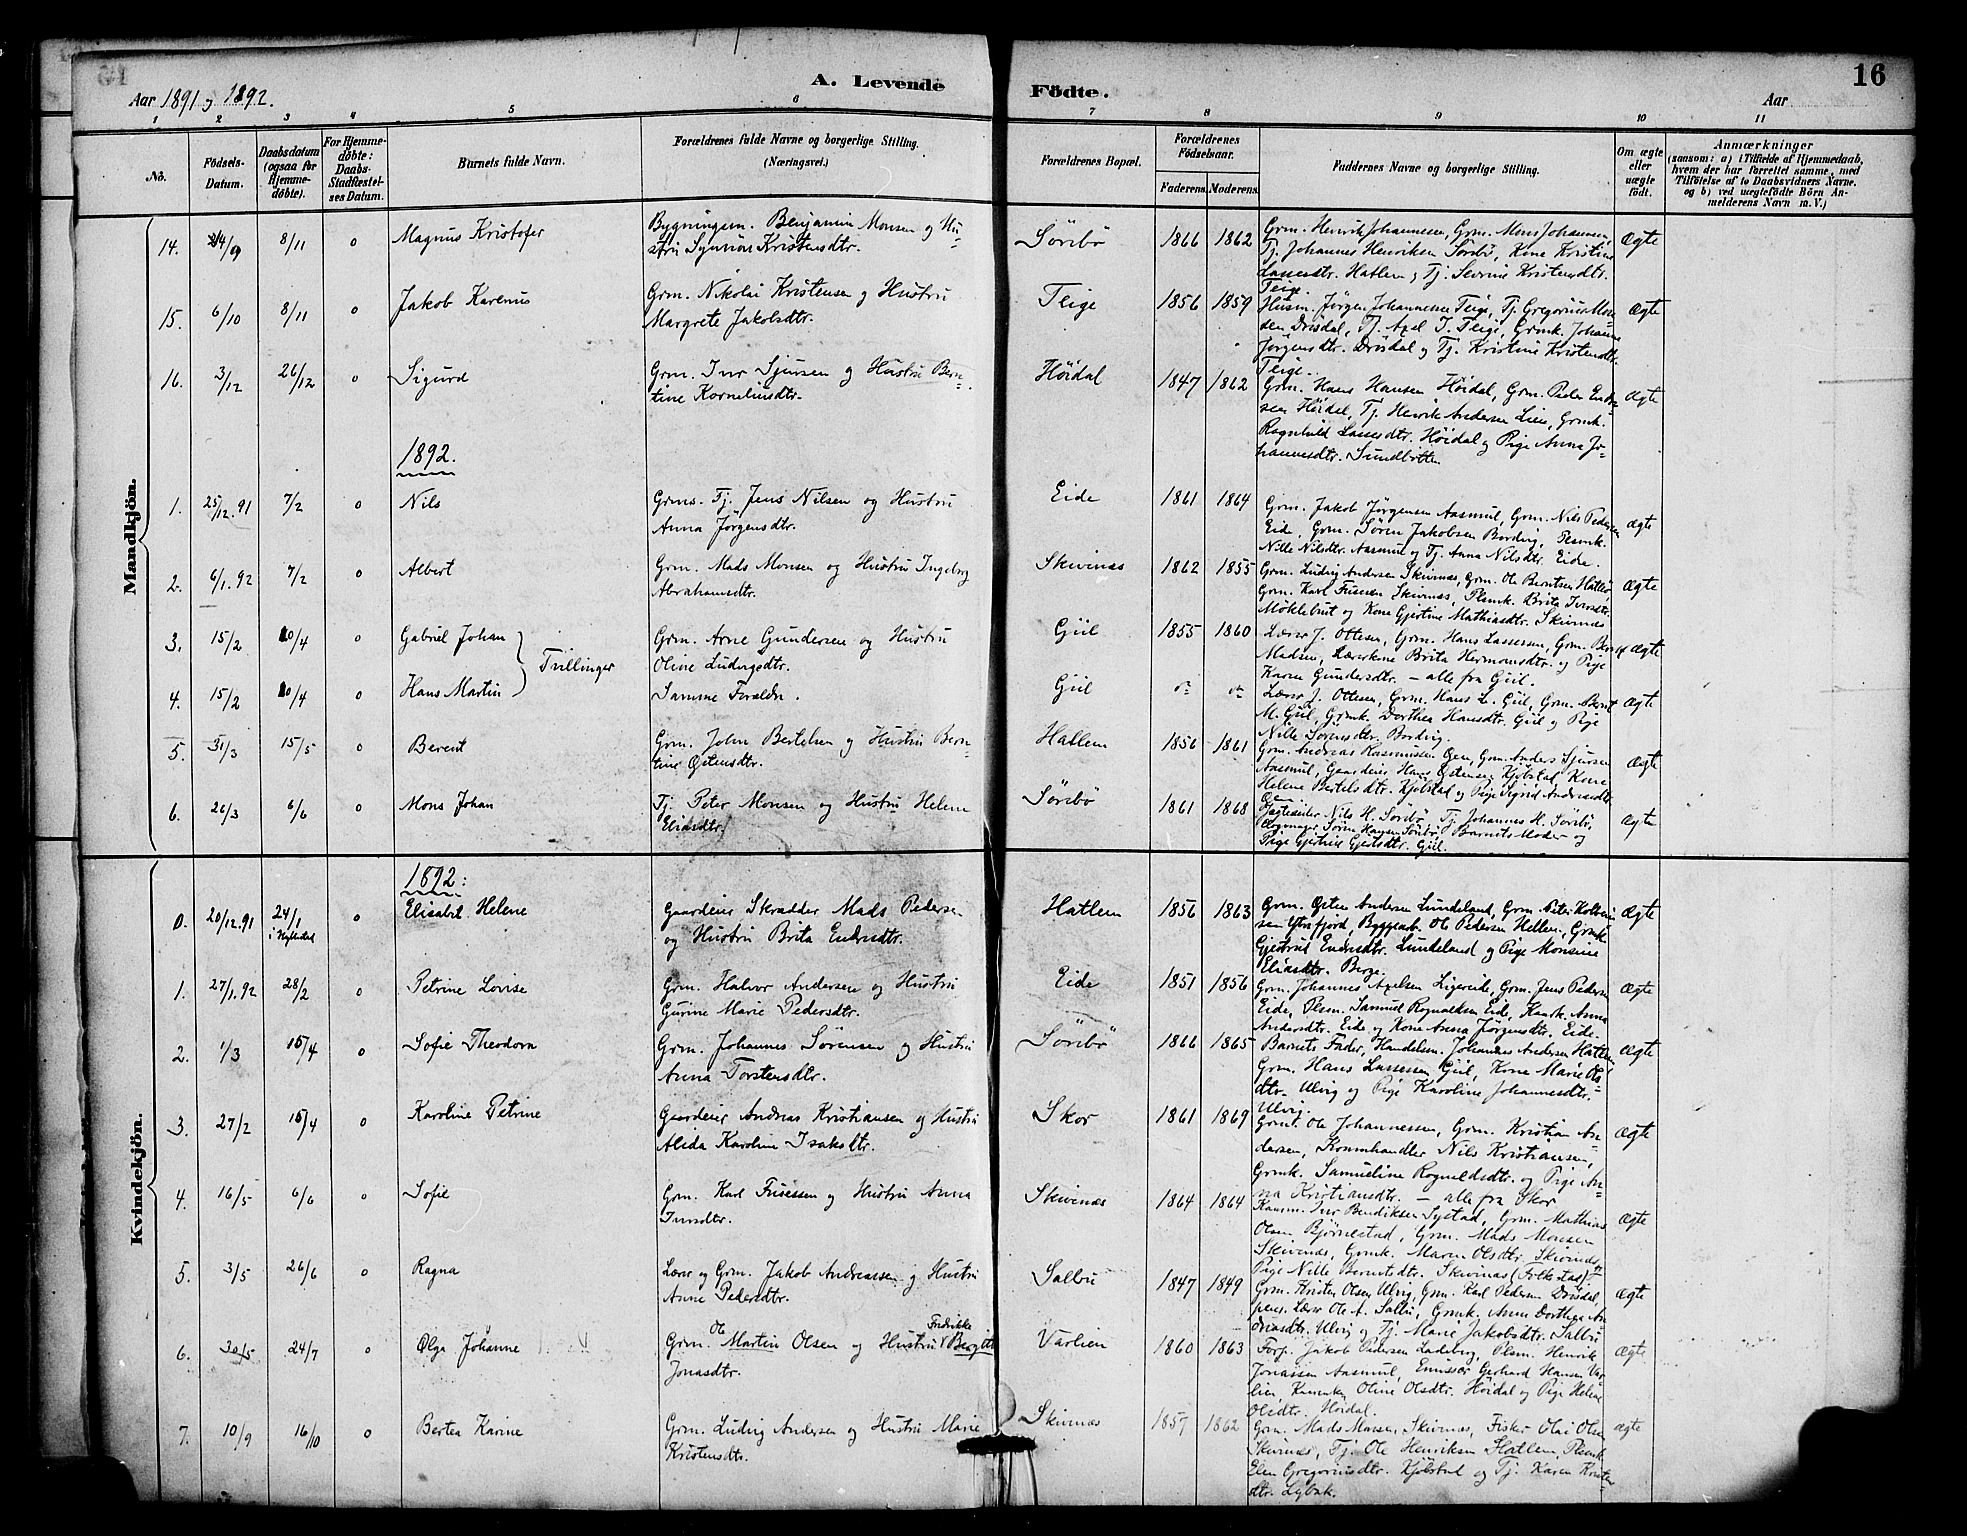 Aar 1891 og 1892.
A. Levende
Födte.
Aar
16
1 2 3 4 5 6 7 8 9 10 11
No.
Födsels-
Datum.
Daabsdatum
(ogsaa for
Hjemme-
döbte).
For Hjemme-
döbte:
Daabs-
Stadfæstel-
ses Datum.
Barnets fulde Navn.
Forældrenes fulde Navne og borgerlige Stilling.
(Næringsvei.)
Forældrenes Bopæl.
Forældrenes
Födselsaar.
Faderens. Moderens.
Faddernes Navne og borgerlige Stilling.
Om ægte
eller
uægte
födt.
Anmærkninger
(saasom: a) i Tilfælde af Hjemmedaab,
hvem der har forrettet samme, med
Tilföielse af to Daabsvidners Navne.
og b) ved uægtefödte Börn An-
melderens Navn m. V.)
Mandkjön.
14. 24/9 8/11 0 Magnus Kristofer
Bygningsm. Benjamin Monsen og Hu-
stru Synnöve Kristensdtr.
Söribö 1866 1862
Grm. Henrik Johannessen, Grm. Mons Johansen,
Tj. Johannes Henriksen Söribö, Kone Kristine
Lassesdtr. Hatlem og Tj. Severine Kristensdtr.
Teige.
Ægte
15. 6/10 8/11 0 Jakob Karenus
Grm. Nikolai Kristensen og Hustru
Margrete Jakobsdtr.
Teige 1856 1859
Husm. Jörgen Johannesen Teige, Tj. Gregorius Mon-
sen Drösdal, Tj. Axel J. Teige, Grmk. Johanne
Jörgensdtr. Drösdal og Tj. Kristine Kristensdtr.
Teige.
Ægte
16. 3/12 26/12 0 Sigurd
Grm. Ivar Sjursen og Hustru Bern-
tine Korneliusdtr.
Höidal 1847 1862
Grm. Hans Hansen Höidal, Grm. Peder Endre-
sen Höidal, Tj. Henrik Andersen Lien, Grmk.
Ragnhild Lassesdtr. Höidal og Pige Anna Jo-
hannesdtr. Sundbotten
Ægte
1892.
1. 25/12.91 7/2 0 Nils
Grms. Tj. Jens Nilsen og Hustru
Anna Jörgensdtr.
Eide 1861 1864
Grm. Jakob Jörgensen Aasmul, Grm. Nils Pedersen
Eide, Grm. Sören Jakobsen Bording, Plsmk.
Nille Nilsdtr. Aasmul og Tj. Anna Nilsdtr. Eide.
Ægte
2. 6/1.92 7/2 0 Albert
Grm. Mads Monsen og Hustru Ingeborg
Abrahamsdtr.
Skivenæs 1862 1855
Grm. Ludvig Andersen Skivenæs, Grm. Ole Berntsen Hatlöi,
Grm. Karl Friesen Skivenæs, Plsmk. Brita Ivarsdtr.
Möklebust og Kone Gjertine Mathiasdtr. Skivenæs
Ægte
3. 15/2 10/4 0 Gabriel Johan
Tvillinger
Grm. Arne Gundersen og Hustru
Oline Ludvigsdtr.
Giil 1855 1860
Lærer J. Ottesen, Grm. Hans Lassesen, Grm. Bernt
Madsen, Lærerkone Brita Hermansdtr. og Pige
Karen Gundersdtr. – alle fra Giil.
Ægte
4. 15/2 10/4 0 Hans Martin
Samme Forældre.
Giil
Lærer J. Ottesen, Grm. Hans L. Giil, Grm. Bernt
M. Giil, Grmk. Dorthea Hansdtr. Giil og Pige
Nille Sörensdtr. Bording.
Ægte
5. 31/3 15/5 0 Berent
Grm. John Bertelsen og Hustru Bern-
tine Östensdtr.
Hatlem 1856 1861
Grm. Andreas Rasmussen Öen, Grm. Anders Sjursen
Aasmul, Gaardeier Hans Östensen Kjölstad, Kone
Helene Bertelsdtr. Kjölstad og Pige Sigrid Andreasdtr.
Öen
Ægte
6. 26/3 6/6 0 Mons Johan
Tj. Peter Monsen og Hustru Helene
Eliasdtr.
Söribö 1861 1868
Jagteskier Nils H. Söribö, Tj. Johannes H. Söribö,
Sören Hansen Söribö, Barnets Moder og
Pige Gjertine Gjertsdtr. Giil.
Ægte
Kvindekjön.
1892:
0. 20/12.91 24/1 0 Elisabet Helene
Gaardeier Skrædder Mads Pedersen
og Hustru Brita Endresdtr.
Hatlem 1856 1863
Grm. Östen Andersen Lundeland, Grm. Peter Kolbein-
sen Ytrefjord, Byggearb. Ole Pedersen Hellem, Grmk.
Gjertrud Endresdtr. Lundeland og Pige Monsine
Eliasdtr. Berge.
Ægte
1. 27/1.92 28/2 0 Petrine Lovise
Grm. Halvor Andersen og Hustru
Gurine Marie Pedersdtr.
Eide 1851 1856
Grm. Johannes Axelsen Ligereide, Grm. Jens Pedersen
Eide, Plsm. Samuel Rognaldsen Eide, Anna
Andersdtr. Eide og Kone Anna Jörgensdtr. Eide.
Ægte
2. 1/3 15/4 0 Sofie Theodora
Grm. Johannes Sörensen og Hustru
Anna Torstensdtr.
Söribö 1866 1865
Barnets Fader, Handelsm. Johannes Andersen Hatlem,
Grm. Hans Lassesen Giil, Kone Marie Ols-
dtr. Ulvig og Pige Karoline Johannesdtr.
Ulvig.
Ægte
3. 27/2 15/4 0 Karoline Petrine
Gaardeier Andreas Kristiansen og Hustru
Alida Karoline Isaksdtr.
Skor 1861 1869
Grm. Ole Johannessen, Grm. Kristian An-
dersen, Kramhandler Nils Kristiansen,
Grmk. Samueline Rognaldsdtr. og Pige An-
na Kristiansdtr. – alle fra Skor
Ægte
4. 16/5 6/6 0 Sofie
Grm. Karl Friesen og Hustru Anna
Ivarsdtr.
Skivenæs 1864 1864
Ivar Bendiksen Systad, Grm. Mathias
Olsen Björnestad, Grm. Mads Monsen
Skivenæs, Grmk. Maren Olsdtr. Skivenæs og
Pige Nille Berntsdtr. Skivenæs (Folkestad)
Ægte
5. 3/5 26/6 0 Ragna
Lærer og Grm. Jakob Andreassen og Hustru
Anne Pedersdtr.
Salbu 1847 1849
Grm. Kristen Olsen Ulvig, Grm. Karl Pedersen Drösdal,
pens. Lærer Ole A. Salbu, Grmk. Anne Dorthea An-
dreasdtr. Ulvig og Tj. Marie Jakobsdtr. Salbu
Ægte
6. 30/5 24/7 0 Olga Johanne
Grm. Ole Martin Olsen og Hustru Fredrikke Bergitte
Jonasdtr.
Varlien 1860 1863
Forp. Jakob Pedersen Ladeberg, Plsm. Henrik
Jonassen Aasmul, Emissær Gerhard Hansen Var-
lien, Oline Olsdtr. Höidal og Pige Helene
Olsdtr. Höidal.
Ægte
7. 10/9 16/10 0 Bertea Karine
Grm. Ludvig Andersen og Hustru Marie
Kristensdtr.
Skivenæs 1857 1862
Grm. Mads Monsen Skivenæs, Fisker Olai Olsen
Skivenæs, Tj. Ole Henriksen Hatlem, Plsmk.
Elen Gregoriusdtr. Kjölstad og Tj. Karen Kristens-
dtr. Lybæk.
Ægte